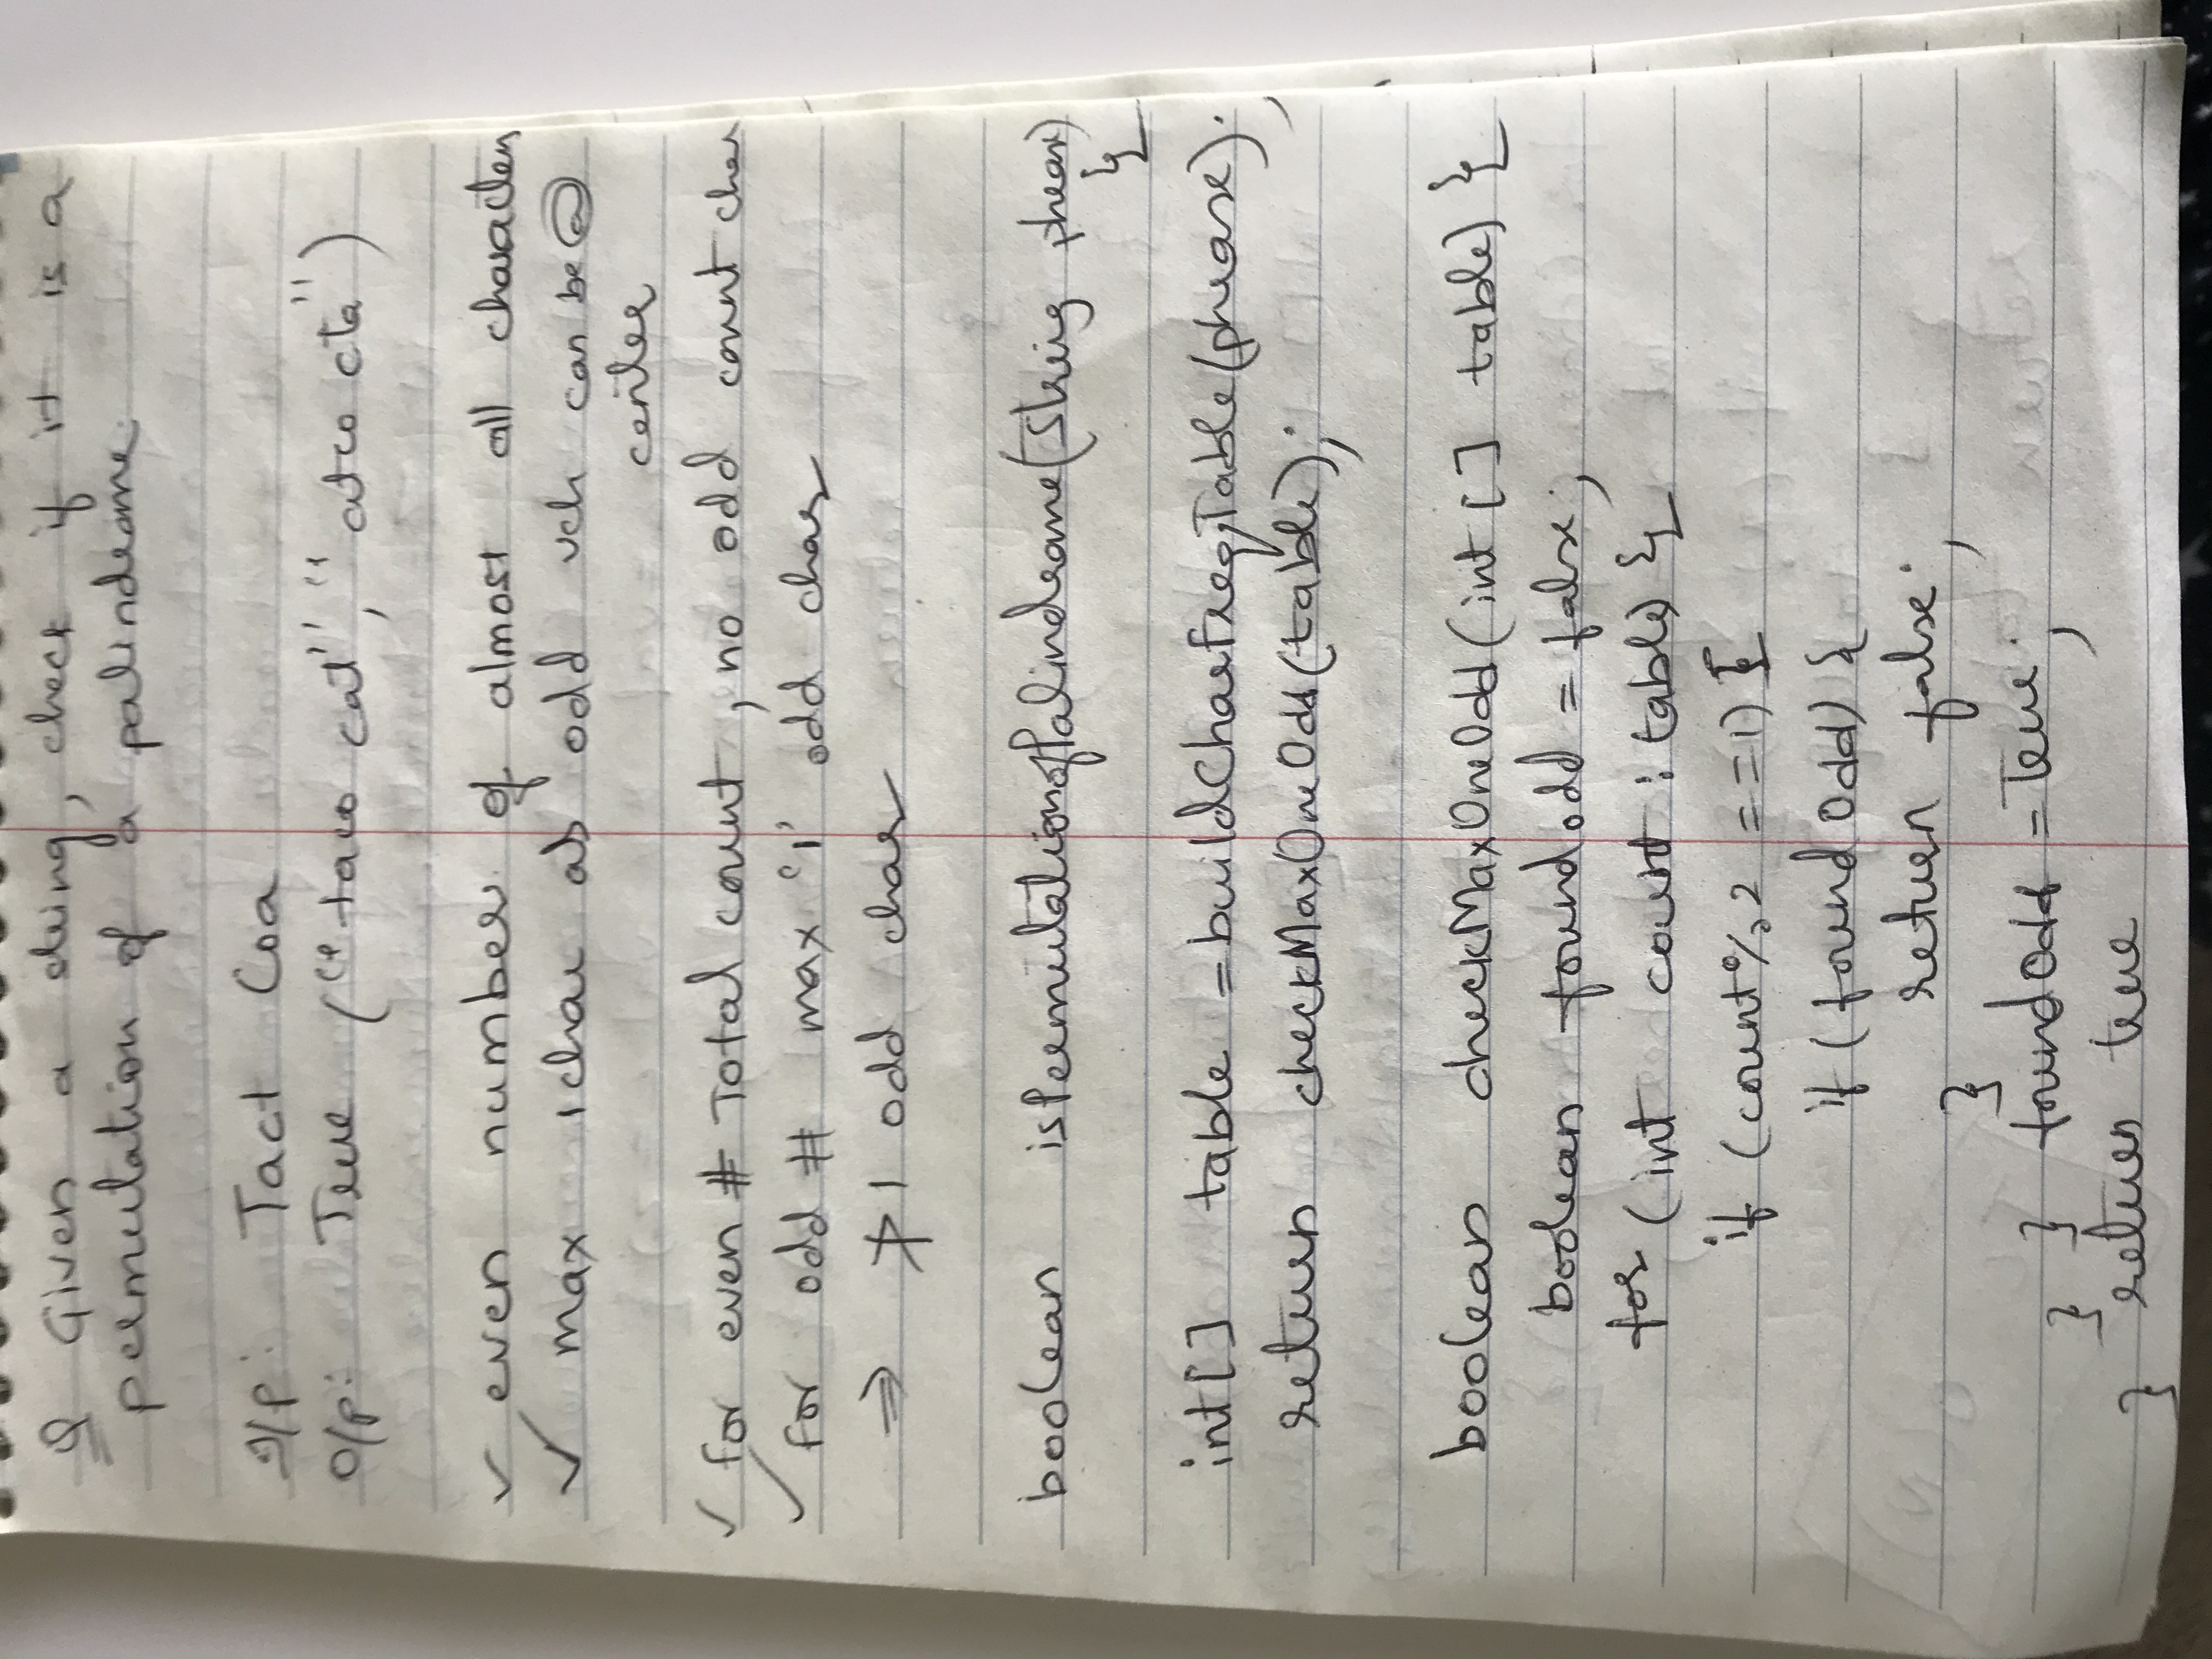 Q Given a string, check if it is a
permutation of a palindrome.
I/p: Tact Coa
O/p: True ("taco cat", "atco cta")
✓ even number of almost all characters
✓ max 1 char as odd wch can be @
center
✓ for even # Total count, no odd count char
✓ for odd # max '1' odd char
⇒ ≯ 1 odd char
boolean isPermutationofPalindrome(String phrase)
{
int[] table = buildCharFreqTable(phrase);
return checkMaxOneOdd(table);
boolean checkMaxOneOdd(int[] table) {
boolean foundodd = false;
for (int count : table) {
if (count%2 ==1) {
if (foundOdd) {
return false;
}
} } foundOdd = True;
} return true